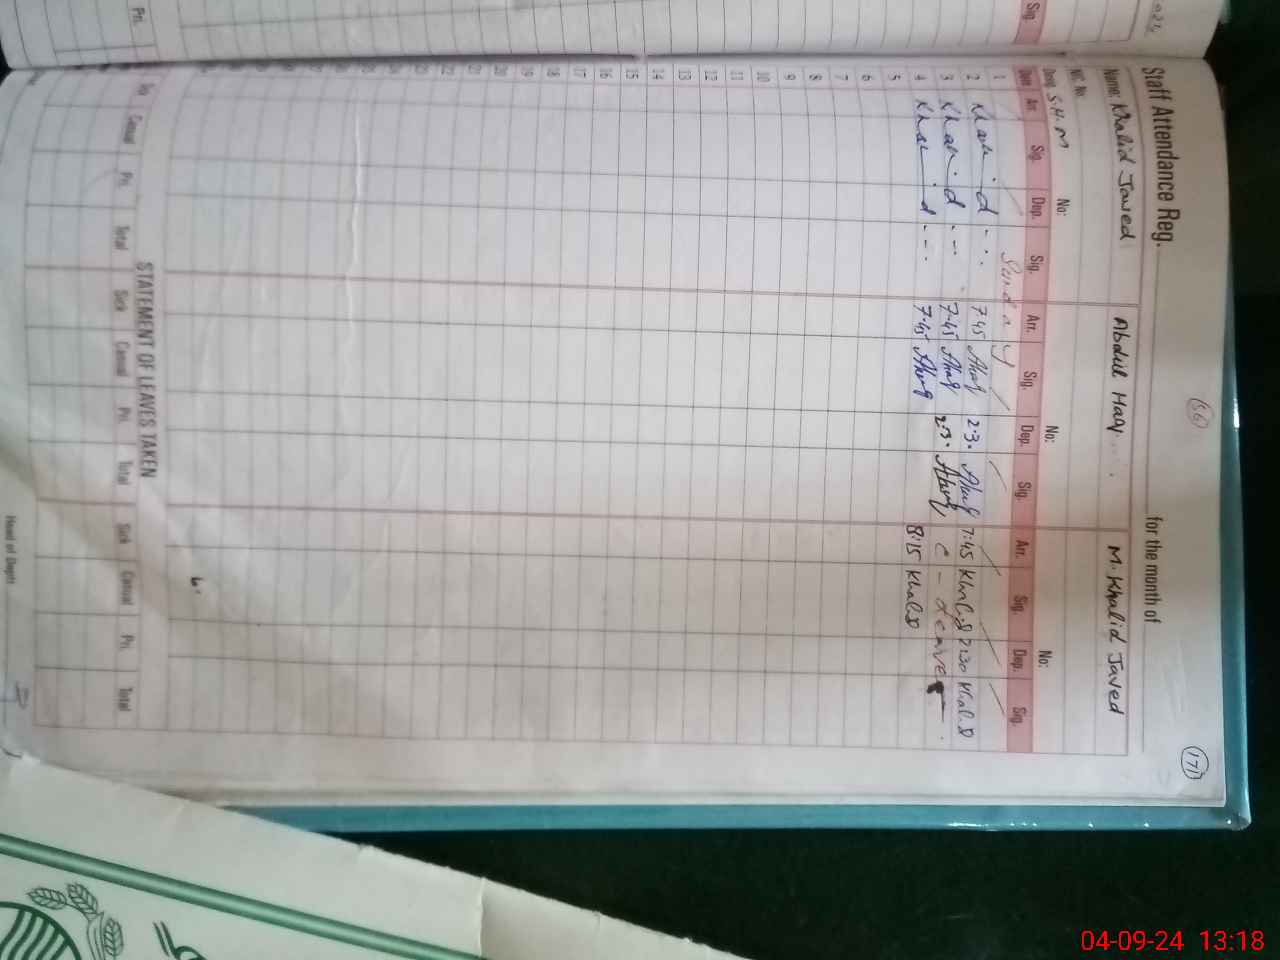 Staff Attendance Reg.
for the month of
56
171
Name: Khalid Javed
Abdul Haq
M. Khalid Javed
NIC. No.
Desig S.H.M No:
No:
No:
Date Arr. Sig. Dep. Sig. Arr. Sig. Dep. Sig. Arr. Sig. Dep. Sig.
1 Sunday
2 7.45 2.3. 7:45 Khalid 2:30 Khalid
3 7.45 2.3. C - Leave
4 7.45 8:15 Khalid
5
6
7
8
9
10
11
12
13
14
15
16
17
18
19
20
21
22
23
24
STATEMENT OF LEAVES TAKEN
Casual Pri. Total Sick Casual Pri. Total Sick Casual Pri. Total
Head of Deptt:
Sig.
Pri.
04-09-24 13:18